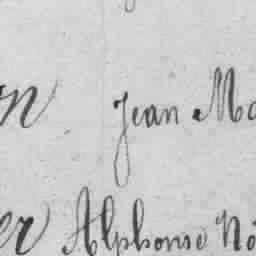 n Jean Ma
er Alphonse No